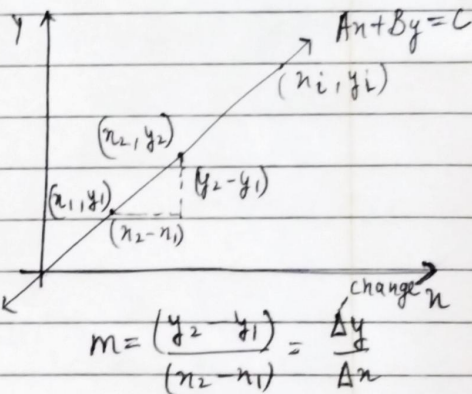 y
Ax+By=C
(xi, yi)
(x2, y2)
(y2-y1)
(x1, y1)
(x2-x1)
change
x
m = (y2-y1)/(x2-x1) = Δy/Δx